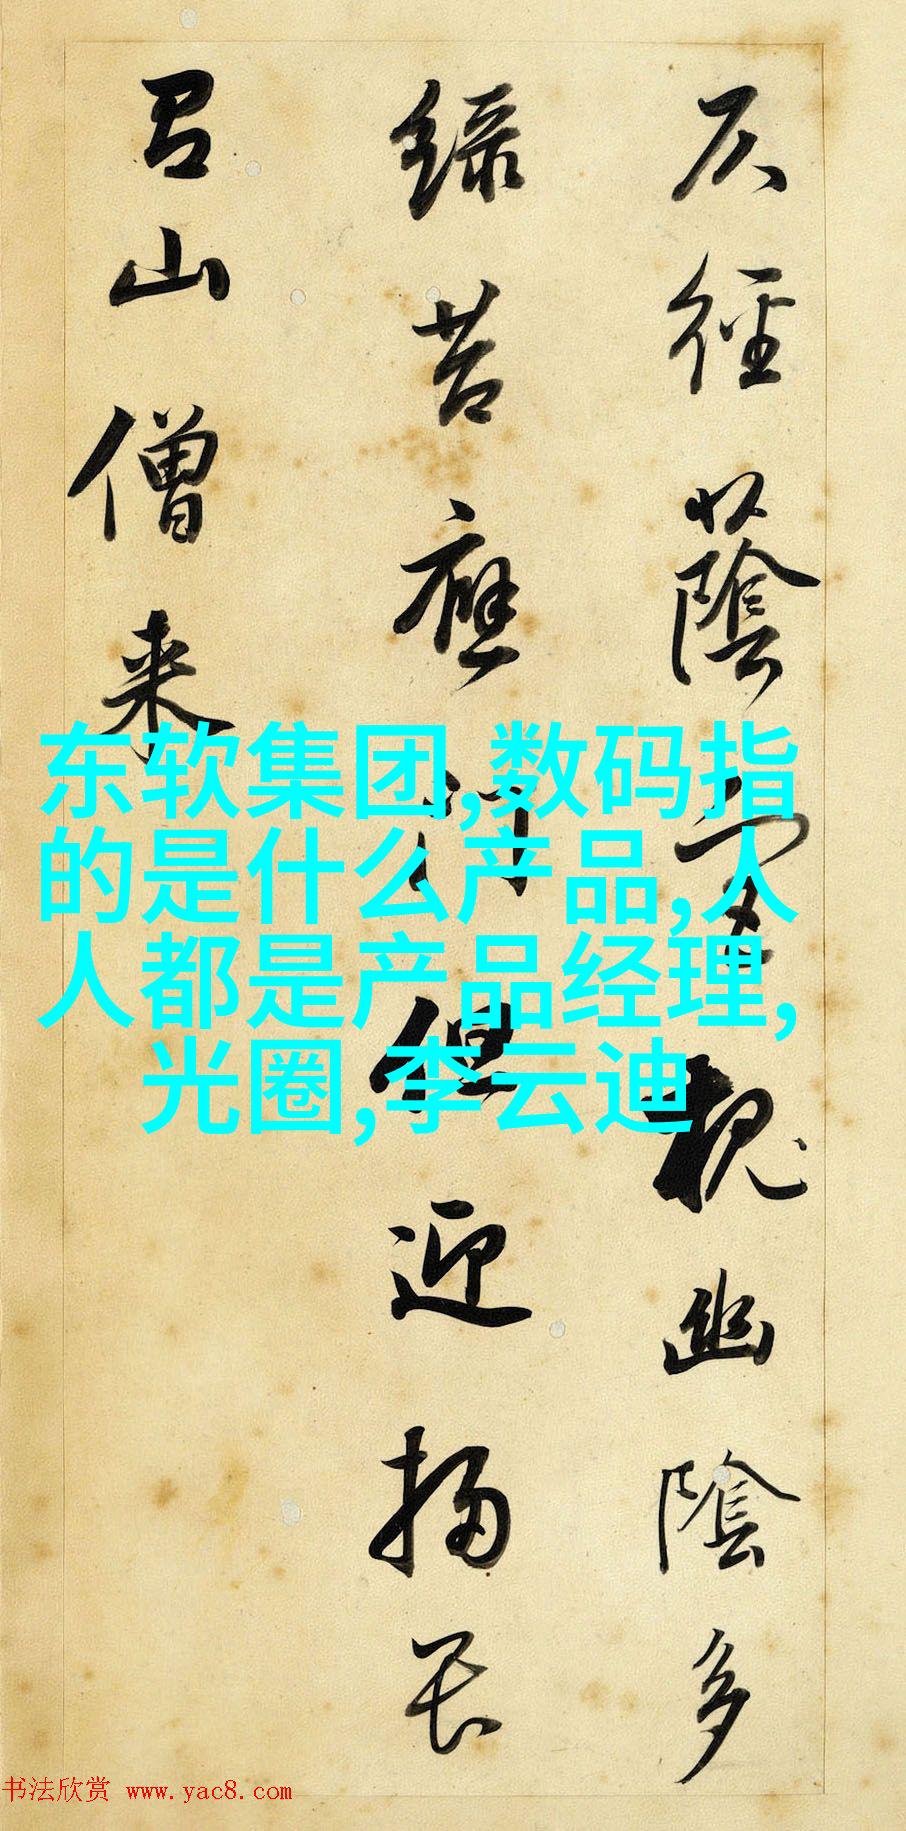 仄徑蔭宮槐幽陰多
綠苔應門但迎掃畏
有山僧来
东软集团,数码指
的是什么产品,人
人都是产品经理,
光圈,李云迪
书法欣赏 www.yac8.com